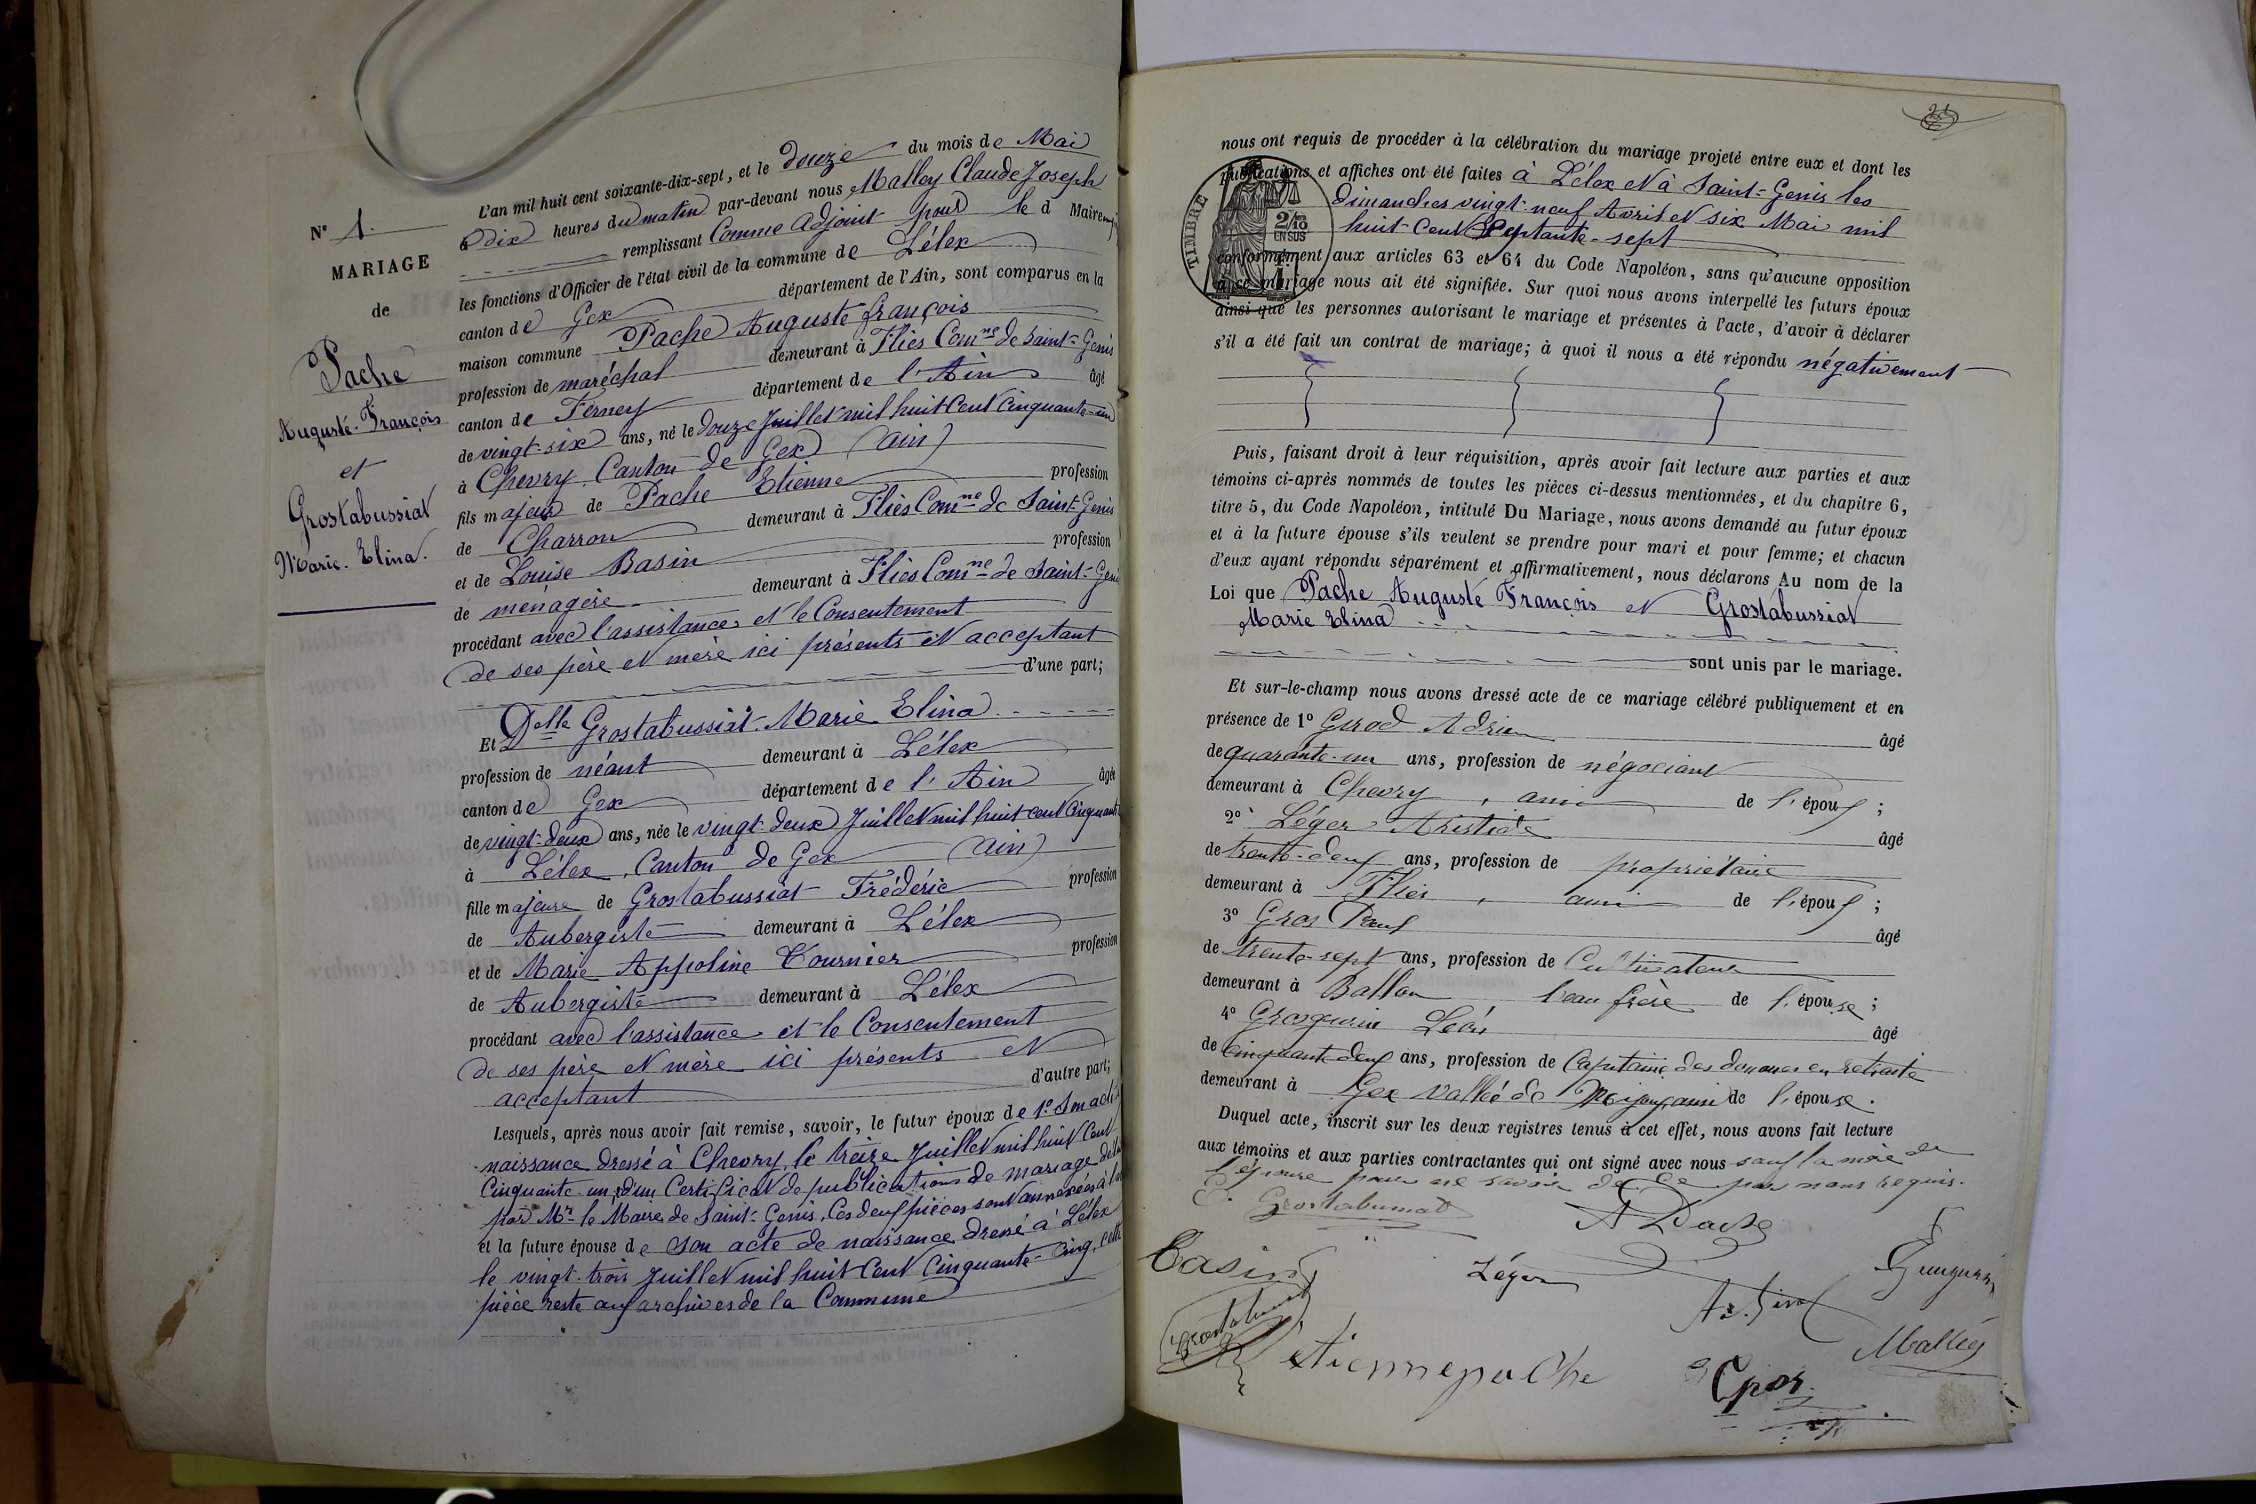 N° 1.
MARIAGE
de
Pache
Auguste-François
et
Grostabussiat
Marie-Elina.
L'an mil huit cent soixante-dix-sept, et le douze du mois de Mai
à dix heures du matin par-devant nous Malley Claude Joseph
remplissant comme adjoint pour le d Maire
les fonctions d'Officier de l'état civil de la commune de Lélex
canton de Gex département de l'Ain, sont comparus en la
maison commune Pache Auguste françois
profession de maréchal demeurant à Fliès Com.ne de Saint-Genis
canton de Ferney département de l'Ain âgé
de vingt-six ans, né le douze Juillet mil huit cent cinquante-un
à Chevry Canton de Gex (Ain)
fils majeur de Pache Etienne profession
de Charron demeurant à Fliès Com.ne de Saint-Genis
et de Louise Basin profession
de ménagère demeurant à Fliès Com.ne de Saint-Genis
procédant avec l'assistance et le Consentement
de ses père et mère ici présents et acceptant
d'une part;
Et Delle Grostabussiat Marie Elina
profession de néant demeurant à Lélex
canton de Gex département de l'Ain âgée
de vingt-deux ans, née le vingt-deux Juillet mil huit cent cinquante
à Lélex, Canton de Gex (Ain)
fille majeure de Grostabussiat Frédéric profession
de Aubergiste demeurant à Lélex
et de Marie Appoline Tournier profession
de Aubergiste demeurant à Lélex
procédant avec l'assistance et le Consentement
de ses père et mère ici présents et
acceptant d'autre part;
Lesquels, après nous avoir fait remise, savoir, le futur époux de 1° Son acte
naissance dressé à Chevry, le treize Juillet mil huit Cent
Cinquante-un, d'un Certificat de publications de mariage
par Mr le Maire de Saint-Genis, Ces deux pièces sont annexées à
et la future épouse de son acte de naissance dressé à Lélex
le vingt-trois Juillet mil huit Cent Cinquante-cinq, cette
pièce reste aux archives de la Commune
nous ont requis de procéder à la célébration du mariage projeté entre eux et dont les
publications et affiches ont été faites à Lélex et à Saint-Genis les
Dimanches vingt-neuf Avril et six Mai mil
huit-cent Septante-sept
conformément aux articles 63 et 64 du Code Napoléon, sans qu'aucune opposition
à ce mariage nous ait été signifiée. Sur quoi nous avons interpellé les futurs époux
ainsi que les personnes autorisant le mariage et présentes à l'acte, d'avoir à déclarer
s'il a été fait un contrat de mariage; à quoi il nous a été répondu négativement
TIMBRE
2/10
EN SUS
Puis, faisant droit à leur réquisition, après avoir fait lecture aux parties et aux
témoins ci-après nommés de toutes les pièces ci-dessus mentionnées, et du chapitre 6,
titre 5, du Code Napoléon, intitulé Du Mariage, nous avons demandé au futur époux
et à la future épouse s'ils veulent se prendre pour mari et pour femme; et chacun
d'eux ayant répondu séparément et affirmativement, nous déclarons Au nom de la
Loi que Pache Auguste François et Grostabussiat
Marie Elina
sont unis par le mariage.
Et sur-le-champ nous avons dressé acte de ce mariage célébré publiquement et en
présence de 1° Girod Adrien âgé
de quarante-un ans, profession de négociant
demeurant à Chevry, ami de l'époux;
2° Léger Aristide âgé
de trente-deux ans, profession de propriétaire
demeurant à Fliès, ami de l'époux;
3° Gros Paul âgé
de trente-sept ans, profession de Cultivateur
demeurant à Ballon beau frère de l'épouse;
4° Grosgurin Léon âgé
de cinquante-deux ans, profession de Capitaine des douanes en retraite
demeurant à Gex Vallée de Mijoux, ami de l'épouse.
Duquel acte, inscrit sur les deux registres tenus à cet effet, nous avons fait lecture
aux témoins et aux parties contractantes qui ont signé avec nous sauf la mère de
l'épouse pour ne savoir de ce par nous requis.
Grostabussiat
A Pache
Basin
Léger
Ad. Girod
étiennepache
Gros
Malley